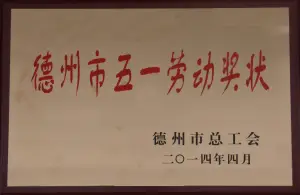 德州市五一劳动奖状
德州市总工会
二〇一四年四月